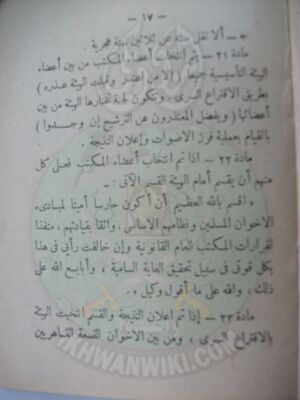 — ١٧ —
ج — ألا تقل سنه عن ثلاثين سنة هجرية
مادة ٢١ — يتم انتخاب أعضاء المكتب من بين أعضاء
الهيئة التأسيسية جميعا ( إلا من اعتذر وقبلت الهيئة عذره )
بطريق الاقتراع السرى ، وتتكون لجنة تختارها الهيئة من بين
أعضائها ( ويفضل المعتذرون عن الترشيح إن وجدوا )
بالقيام بعملية فرز الأصوات وإعلان النتيجة .
مادة ٢٢ — إذا تم انتخاب أعضاء المكتب فعلى كل
منهم أن يقسم أمام الهيئة القسم الآتى : —
« أقسم بالله العظيم أن أكون حارسا أمينا لمبادىء
الاخوان المسلمين ونظامهم الاساسى ، واثقا بقيادتهم ، منفذا
لقرارات المكتب العام القانونية وإن خالفت رأيى فى هذا
بكل قوتى فى سبيل تحقيق الغاية السامية ، وأبايع الله على
ذلك ، والله على ما أقول وكيل » .
مادة ٢٣ — إذا تم اعلان النتيجة والقسم انتخبت الهيئة
بالاقتراع السرى ، ومن بين الاخوان التسعة القاهريين
IKHWANWIKI.COM